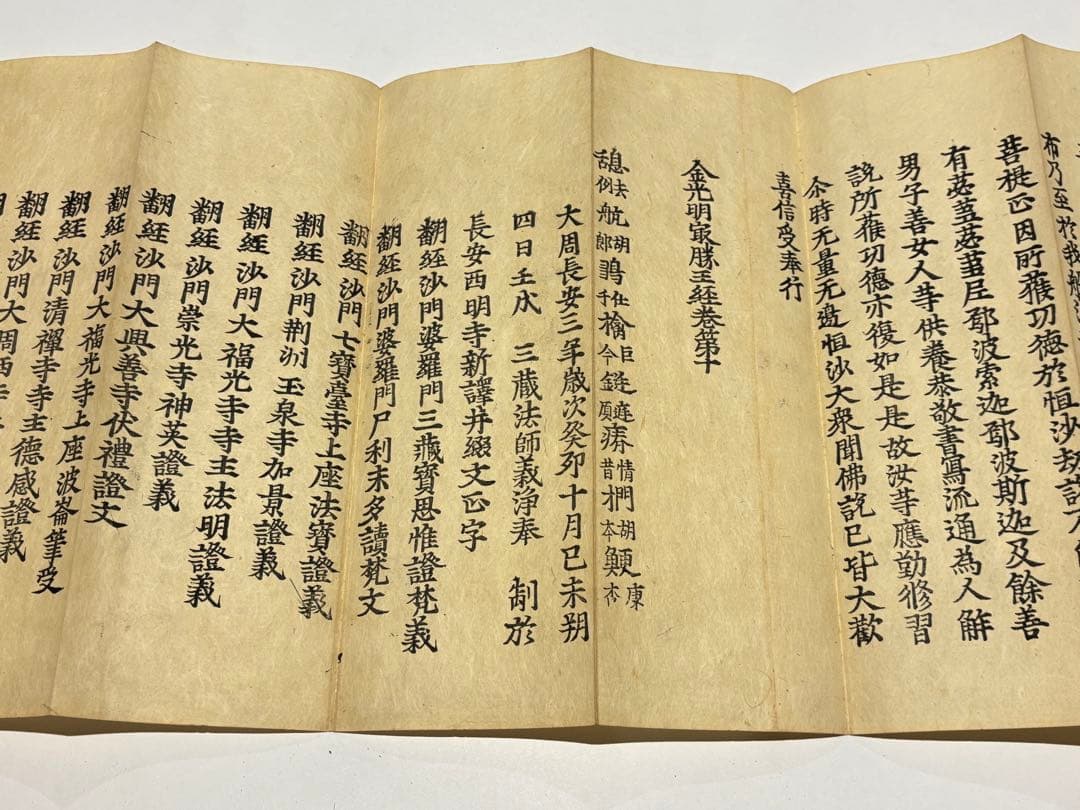 布乃至於我般
菩提正因所獲功德於恒沙劫說不
有苾蒭苾蒭尼鄔波索迦鄔波斯迦及餘善
男子善女人等供養恭敬書寫流通為人解
說所獲功德亦復如是是故汝等應勤修習
尒時无量无邊恒沙大衆聞佛說已皆大歡
喜信受奉行
金光明最勝王經卷第十
憩去例航胡郎鵶仕千檎巨今鏈連願瘠情昔椚胡本鯁康杏
大周長安三年歲次癸卯十月已未朔
四日壬戌 三藏法師義淨奉 制於
長安西明寺新譯并綴文正字
翻經沙門婆羅門三藏寶思惟證梵義
翻經沙門婆羅門尸利末多讀梵文
翻經沙門七寶臺寺上座法寶證義
翻經沙門荆州玉泉寺加景證義
翻經沙門大福光寺寺主法明證義
翻經沙門崇光寺神英證義
翻經沙門大興善寺伏禮證文
翻經沙門大福光寺上座波崙筆受
翻經沙門清禪寺寺主德感證義
翻經沙門大周西寺